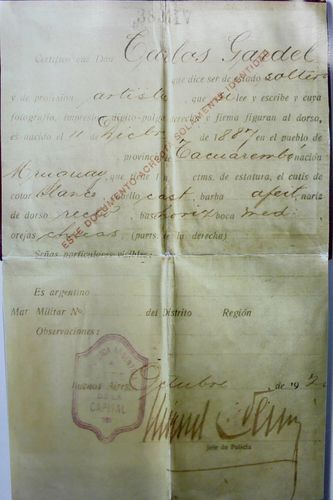 Certifico que Don Carlos Gardel
que dice ser de estado soltero
y de profesión artista, que lee y escribe y cuya
fotografía, impresión dígito-pulgar derecha y firma figuran al dorso,
es nacido el 11 de Dicbre de 1887 en el pueblo de
provincia Tacuarembó nación
Uruguay que mide cms. de estatura, el cutis de
color blanco cabello cast. barba afeit. nariz
de dorso rect. base horiz boca med.
orejas (parts. de la derecha)
Señas particulares visibles:
ESTE DOCUMENTO ACREDITA SOLAMENTE IDENTIDAD
Es argentino
Mat Militar No del Distrito Región
Observaciones:
BUENOS AIRES
DE LA
CAPITAL
Octubre de 192
Jefe de Policía